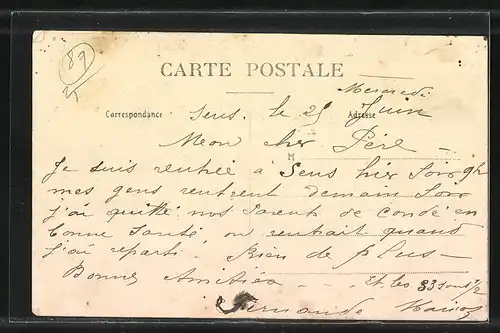 89
CARTE POSTALE
Mercredi
Correspondance Sens, le 25 Juin Adresse
Mon cher Père -
M
Je suis rentrée à Sens hier soir 9h
mes gens rentrent demain soir
j'ai quitté nos Parents de Condé en
bonne Santé on rentrait quand
j'ai reparti. Rien de plus -
Bonnes Amitiés - - Et les 33 sous 1/2
Fernande